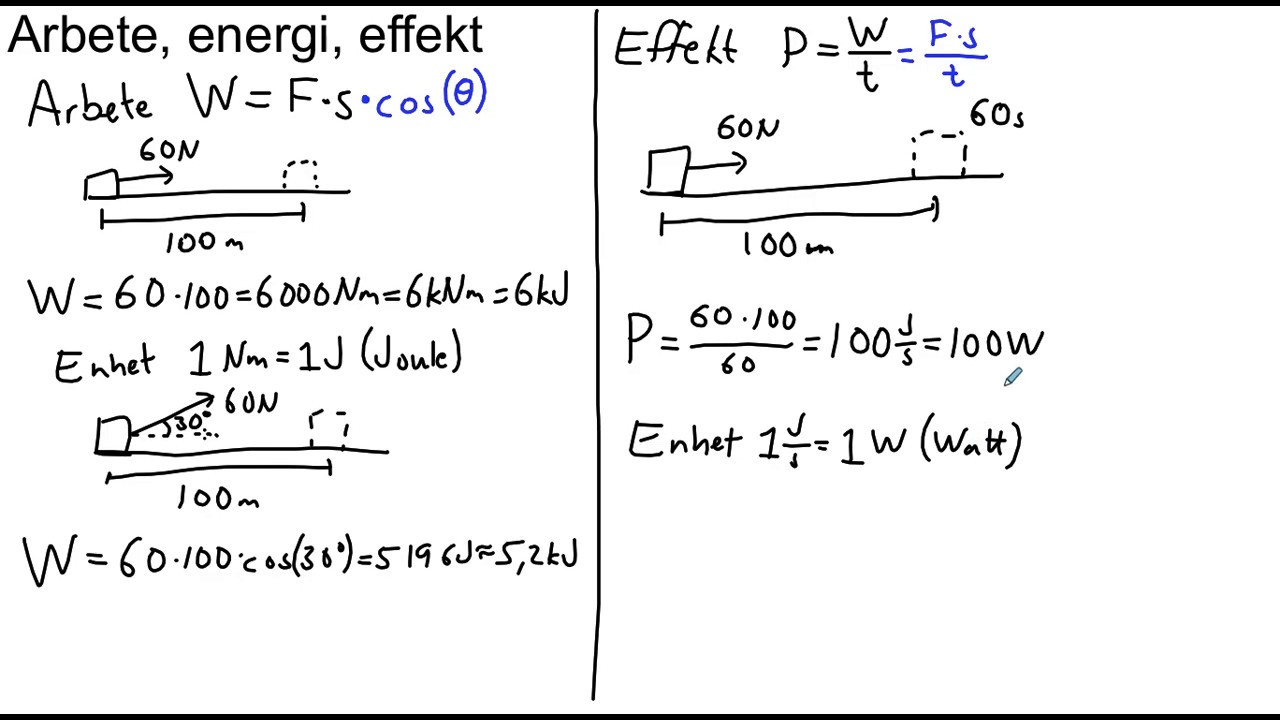 Arbete, energi, effekt
Arbete W = F·s·cos(θ)
60N
100 m
W = 60·100 = 6000Nm = 6kNm = 6kJ
Enhet 1 Nm = 1J (Joule)
60N
30°
100 m
W = 60·100·cos(30°) = 5196J ≈ 5,2kJ
Effekt P = W/t = F·s/t
60N
60s
100 m
P = 60·100/60 = 100 J/s = 100W
Enhet 1 J/s = 1 W (Watt)